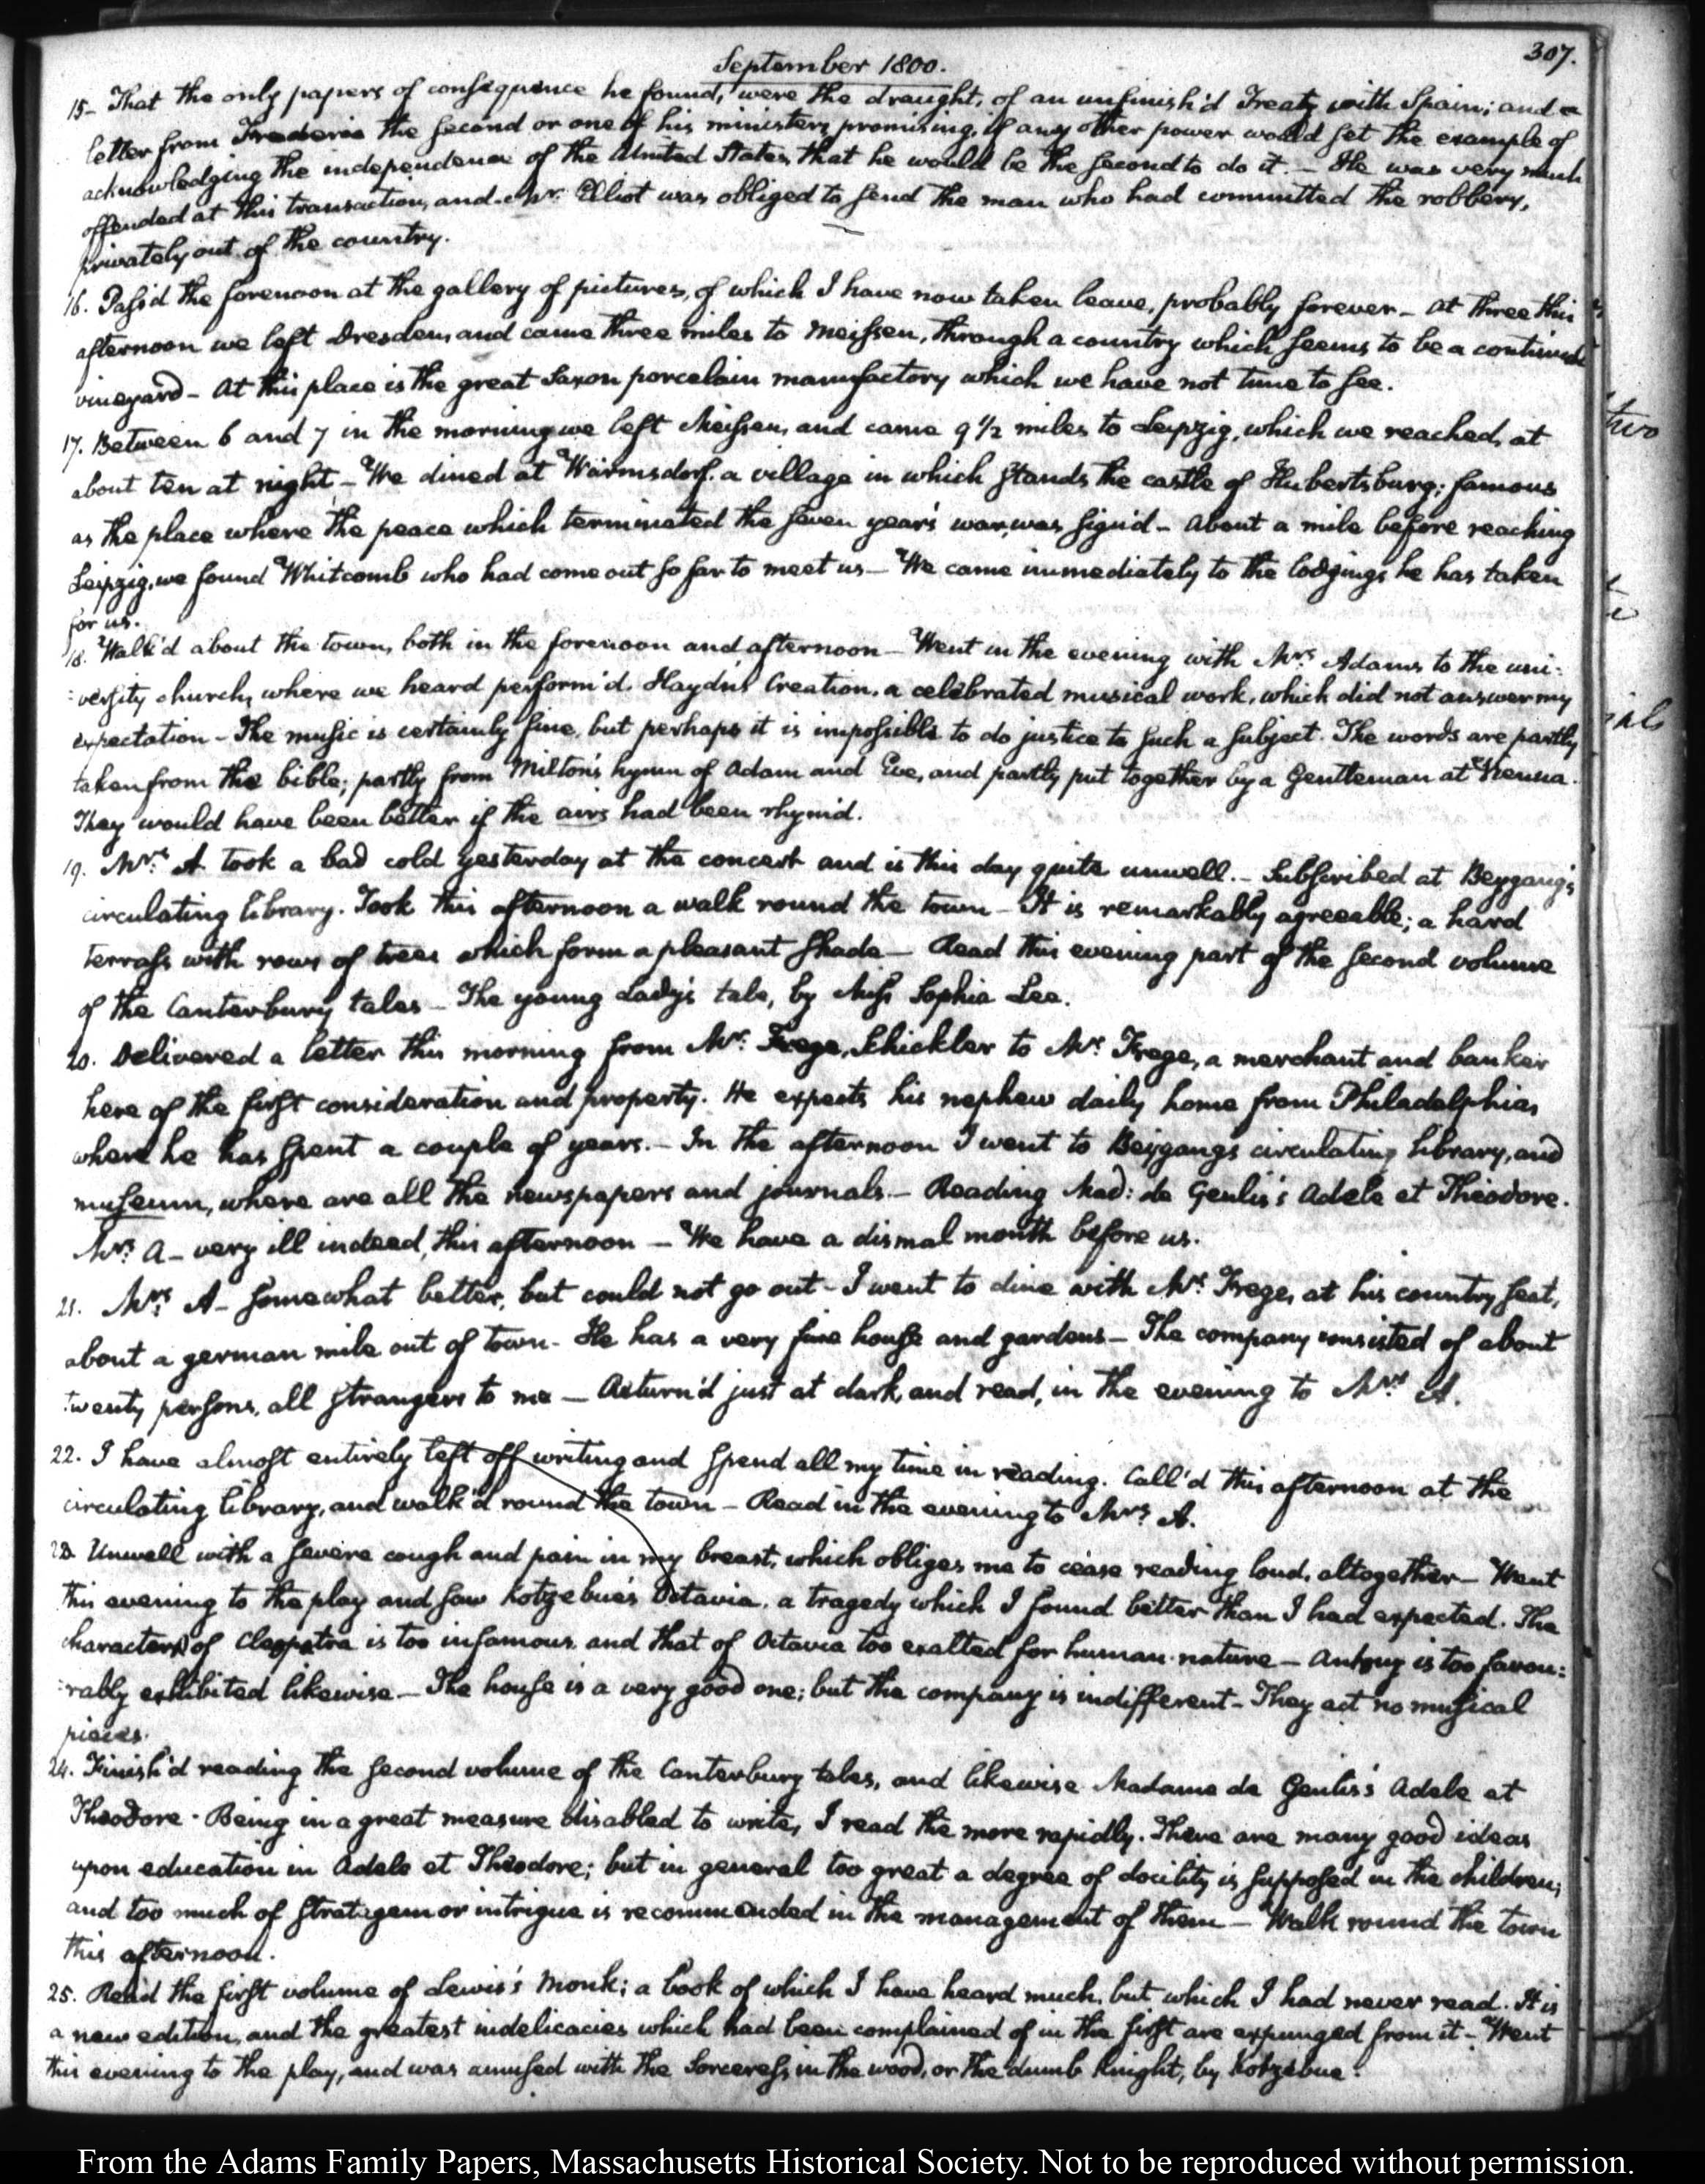 September 1800.
307.
15- That the only papers of consequence he found, were the draught, of an unfinish'd Treaty with Spain; and a
letter from Frederic the second or one of his ministers promising, if any other power would set the example of
acknowledging the independence of the United States, that he would be the second to do it. — He was very much
offended at this transaction, and Mr: Elliot was obliged to send the man who had committed the robbery,
privately out of the country.
16. Pass'd the forenoon at the gallery of pictures, of which I have now taken leave, probably forever — At three this
afternoon we left Dresden, and came three miles to Meissen, through a country which seems to be a continued
vineyard — At this place is the great Saxon porcelain manufactory which we have not time to see.
17. Between 6 and 7 in the morning we left Meissen, and came 9 1/2 miles to Leipzig, which we reached, at
about ten at night — We dined at Warmsdorf. a village in which stands the castle of Hubertsburg; famous
as the place where the peace which terminated the seven year's war, was sign'd — About a mile before reaching
Leipzig, we found Whitcomb who had come out so far to meet us — We came immediately to the lodgings he has taken
for us.
18. Walk'd about the town, both in the forenoon and afternoon — Went in the evening with Mrs: Adams to the uni:
:versity church, where we heard perform'd, Haydn's Creation. a celebrated musical work, which did not answer my
expectation — The music is certainly fine, but perhaps it is impossible to do justice to such a subject. The words are partly
taken from the bible; partly from Milton's hymn of Adam and Eve, and partly put together by a Gentleman at Vienna.
They would have been better if the airs had been rhym'd.
19. Mrs: A. took a bad cold yesterday at the concert and is this day quite unwell. — Subscribed at Beygang's
circulating library. Took this afternoon a walk round the town — It is remarkably agreeable; a hard
terrass with rows of trees which form a pleasant shade — Read this evening part of the second volume
of the Canterbury tales — The young Lady's tale, by Miss Sophia Lee.
20. Delivered a letter this morning from Mr: Frege, Schickler to Mr: Frege, a merchant and banker
here of the first consideration and property. He expects his nephew daily home from Philadelphia,
where he has spent a couple of years. — In the afternoon I went to Beygang's circulating library, and
museum, where are all the newspapers and journals. — Reading Mad: de Genlis's Adele et Théodore.
Mrs: A — very ill indeed, this afternoon — We have a dismal month before us.
21. Mrs: A — somewhat better, but could not go out — I went to dine with Mr: Frege, at his country seat,
about a german mile out of town — He has a very fine house and gardens — The company consisted of about
twenty persons, all strangers to me — Return'd just at dark, and read, in the evening to Mrs: A.
22. I have almost entirely left off writing and spend all my time in reading. Call'd this afternoon at the
circulating library, and walk'd round the town — Read in the evening to Mrs: A.
23. Unwell with a severe cough and pain in my breast, which obliges me to cease reading loud, altogether — Went
this evening to the play and saw Kotzebue's Octavia. a tragedy which I found better than I had expected. The
character of Cleopatra is too infamous and that of Octavia too exalted for human nature — Antony is too favou:
:rably exhibited likewise — The house is a very good one; but the company is indifferent — They act no musical
pieces.
24. Finish'd reading the second volume of the Canterbury tales, and likewise Madame de Genlis's Adele et
Théodore. Being in a great measure disabled to write, I read the more rapidly. There are many good ideas
upon education in Adele et Théodore; but in general too great a degree of docility is supposed in the children;
and too much of stratagem or intrigue is recommended in the management of them — Walk round the town
this afternoon.
25. Read the first volume of Lewis's Monk; a book of which I have heard much, but which I had never read. It is
a new edition, and the greatest indelicacies which had been complained of in the first are expunged from it — Went
this evening to the play, and was amused with the Sorceress in the wood, or the dumb Knight, by Kotzebue.
two
From the Adams Family Papers, Massachusetts Historical Society. Not to be reproduced without permission.